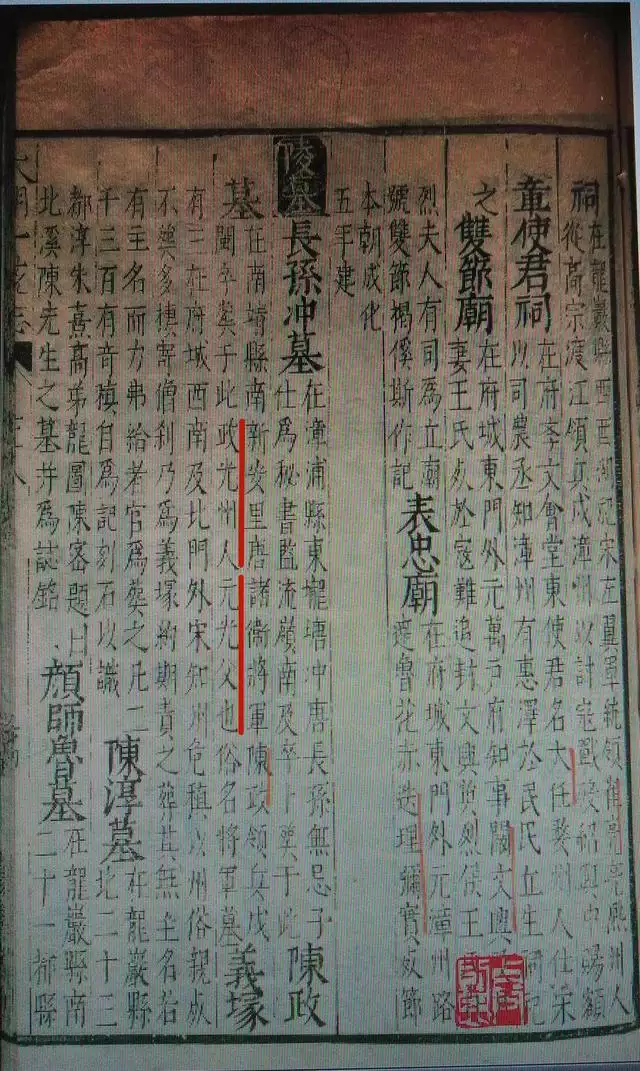 祠在龍巖縣西西湖祀宋左翼軍統領崔亮亮熙州人
從高宗渡江領兵戍漳州以討寇戰殁紹興中賜額
章使君祠在府李文會堂東使君名大任婺州人仕宋
以司農丞知漳州有惠澤於民民立生祠祀
之雙節廟在府城東門外元萬戶府知事闞文興與
妻王氏死於寇難追封文興英烈侯王
烈夫人有司爲立廟
號雙節揭傒斯作記
表忠廟在府城東門外元漳州路
達魯花赤迭理彌實死節
本朝成化
五年建
陵墓
長孫冲墓在漳浦縣東罷塘冲唐長孫無忌子
仕爲秘書監流嶺南及卒卜葬于此
陳政
墓在南靖縣南新安里唐諸衞將軍陳政領兵戍
閩卒葬于此政光州人元光父也俗名將軍墓
義塚
有三在府城西南及北門外宋知州危稹以州俗親死
不葬多棲寄僧刹乃爲義塚約期責之葬其無主名若
有主名而力弗給者官爲葬之凡二
千三百有奇稹自爲記刻石以識
陳淳墓在龍巖縣
北二十三
都淳朱熹高弟龍圖陳宓題曰
北溪陳先生之墓并爲誌銘
顏師魯墓在龍巖縣南
二十一都縣
大明一統志